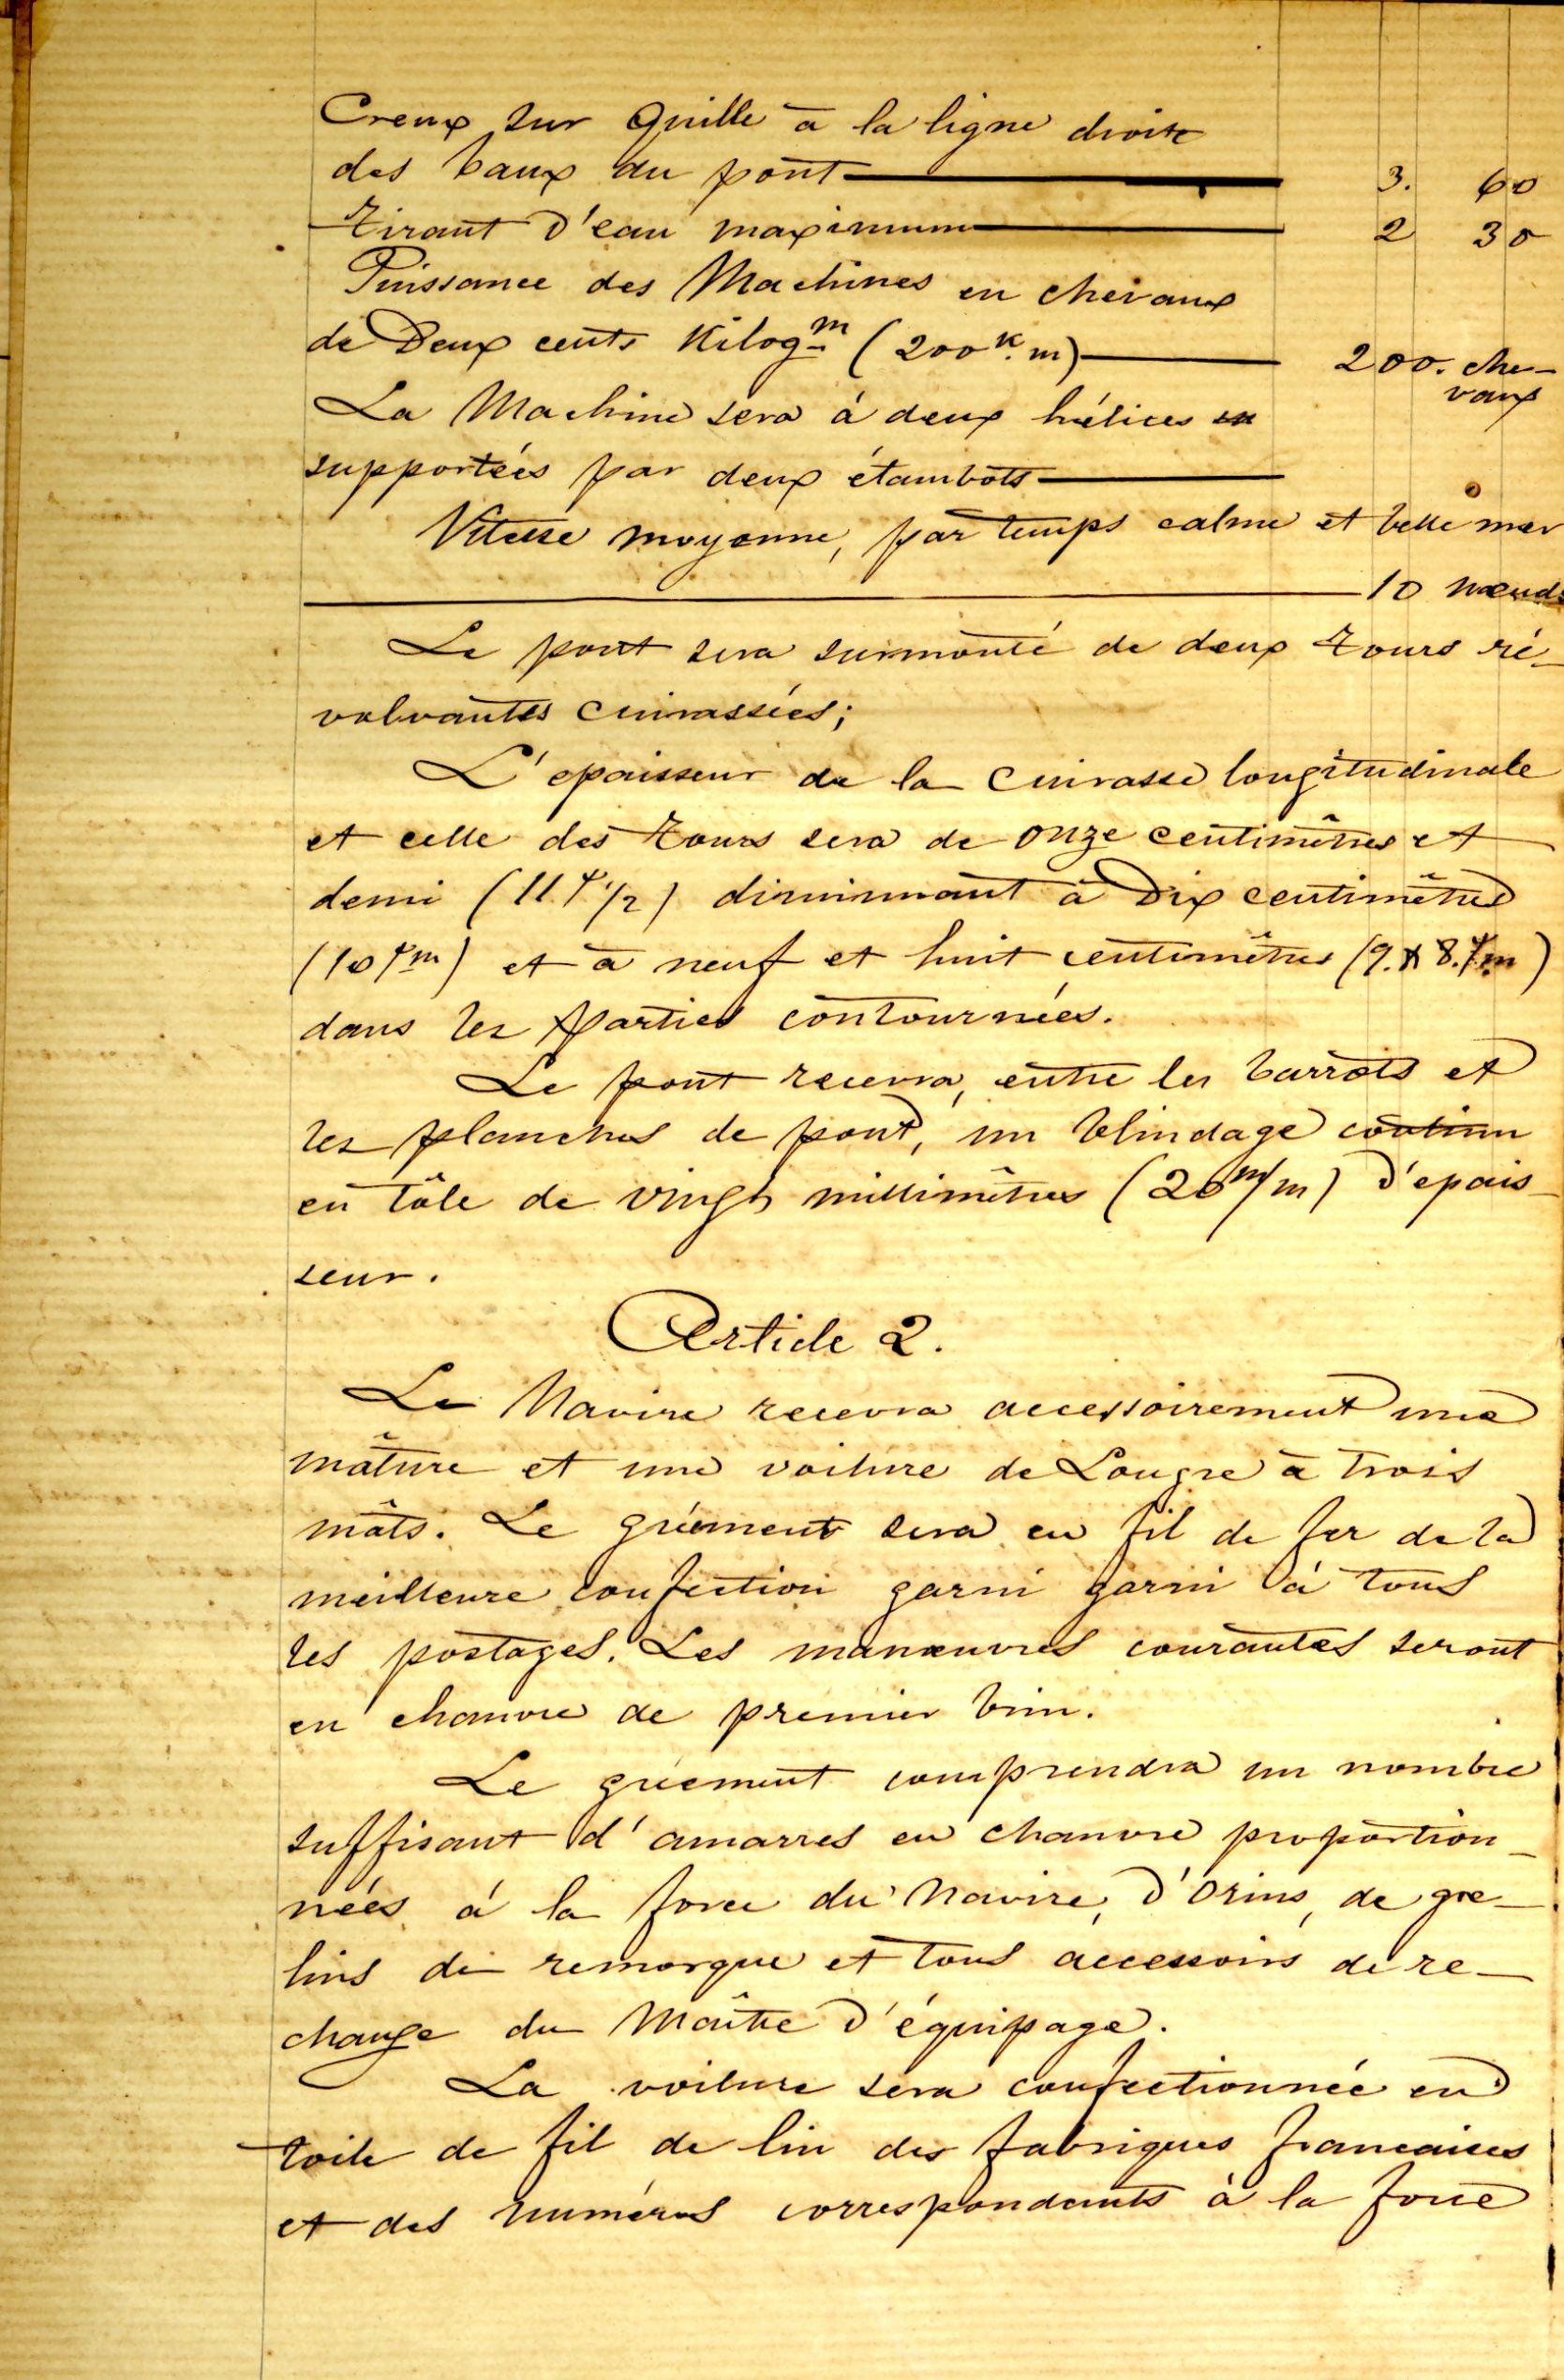 Creux sur Quille à la ligne droite
des baux du pont 3. 60
Tirant d'eau maximum 2 30
Puissance des Machines en chevaux
de Deux cents Kilogm (200 k. m) 200. che-
vaux
La Machine sera à deux hélices
supportées par deux étambots
Vitesse moyenne, par temps calme et belle mer
10 nœuds
Le pont sera surmonté de deux Tours ré-
volvantes cuirassées;
L'epaisseur de la Cuirasse longitudinale
et celle des Tours sera de onze centimètres et
demi (11 c/ 1/2) diminuant à Dix centimètres
(10 c/m) et à neuf et huit centimètres (9. & 8. c/m)
dans les parties contournées.
Le pont recevra, entre les barrots et
les planches de pont, un blindage continu
en tôle de vingt millimètres (20 m/m) d'epais-
seur.
Article 2.
Le Navire recevra accessoirement une
mâture et une voilure de Lougre à trois
mâts. Le gréement sera en fil de fer de la
meilleure confection garni garni à tous
les postages. Les manœuvres courantes seront
en chanvre de premier brin.
Le gréement comprendra un nombre
suffisant d'amarres en chanvre proportion-
nées à la force du Navire, d'Orins, de gre-
lins de remorque et tous accessoirs de re-
change du Maître d'équipage.
La voilure sera confectionnée en
toile de fil de lin des fabriques francaises
et des numéros correspondants à la force